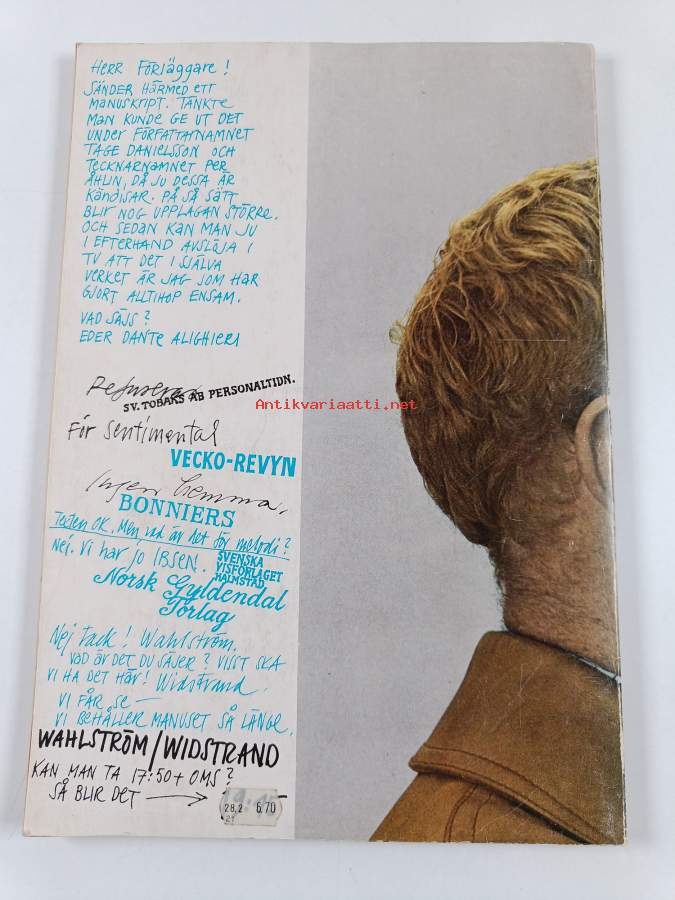 HERR FÖRLÄGGARE!
SÄNDER HÄRMED ETT
MANUSKRIPT. TÄNKTE
MAN KUNDE GE UT DET
UNDER FÖRFATTARNAMNET
TAGE DANIELSSON OCH
TECKNARNAMNET PER
ÅHLIN, DÅ JU DESSA ÄR
KÄNDISAR. PÅ SÅ SÄTT
BLIR NOG UPPLAGAN STÖRRE.
OCH SEDAN KAN MAN JU
I EFTERHAND AVSLÖJA I
TV ATT DET I SJÄLVA
VERKET ÄR JAG SOM HAR
GJORT ALLTIHOP ENSAM.
VAD SÄJS?
EDER DANTE ALIGHIERI
Refuseras
SV. TOBAKS AB PERSONALTIDN.
Antikvariaatti.net
För sentimental
VECKO-REVYN
Ingen hemma.
BONNIERS
Texten OK. Men vad är det för melodi?
SVENSKA
VISFÖRLAGET
HALMSTAD
Nej. Vi har jo IBSEN.
Norsk Gyldendal
Forlag
Nej tack! Wahlström.
VAD ÄR DET DU SÄJER? VISST SKA
VI HA DET HÄR! Widstrand.
VI FÅR SE —
VI BEHÅLLER MANUSET SÅ LÄNGE.
WAHLSTRÖM/WIDSTRAND
KAN MAN TA 17:50 + OMS?
SÅ BLIR DET →
28.2 6.70